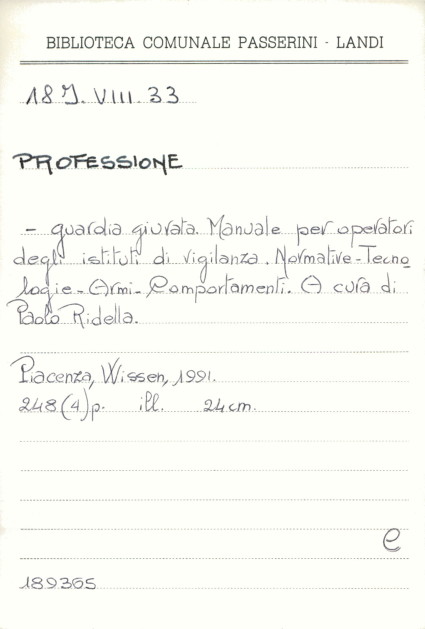 BIBLIOTECA COMUNALE PASSERINI - LANDI
18 J. VIII. 33
PROFESSIONE
- guardia giurata. Manuale per operatori
degli istituti di vigilanza. Normative - Tecno
logie - Armi - Comportamenti. A cura di
Paolo Ridella.
Piacenza, Wissen, 1991.
248 (4) p. ill. 24 cm.
e
189365